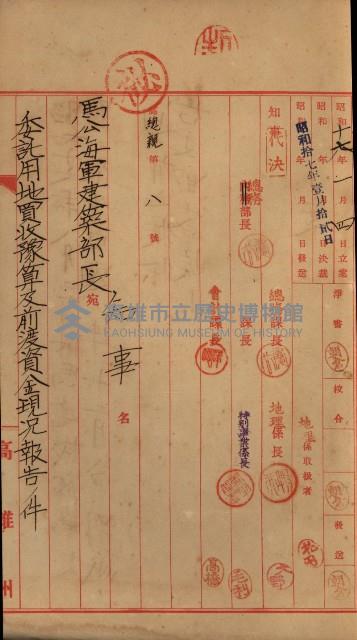 秘
昭和十七年一月四日立案
昭和 年 月 日決裁
昭和拾七年壹月拾貳日
昭和 年 月 日發送
淨書
校合
發送
地理係取扱者
知事
代決
總務部長
總務課長
地理係長
會計課長
課長
特別調査係長
總親第八號
知事
名
馬公海軍建築部長宛
委託用地買收豫算及前渡資金現況報告ノ件
高雄州
高雄市立歷史博物館
KAOHSIUNG MUSEUM OF HISTORY